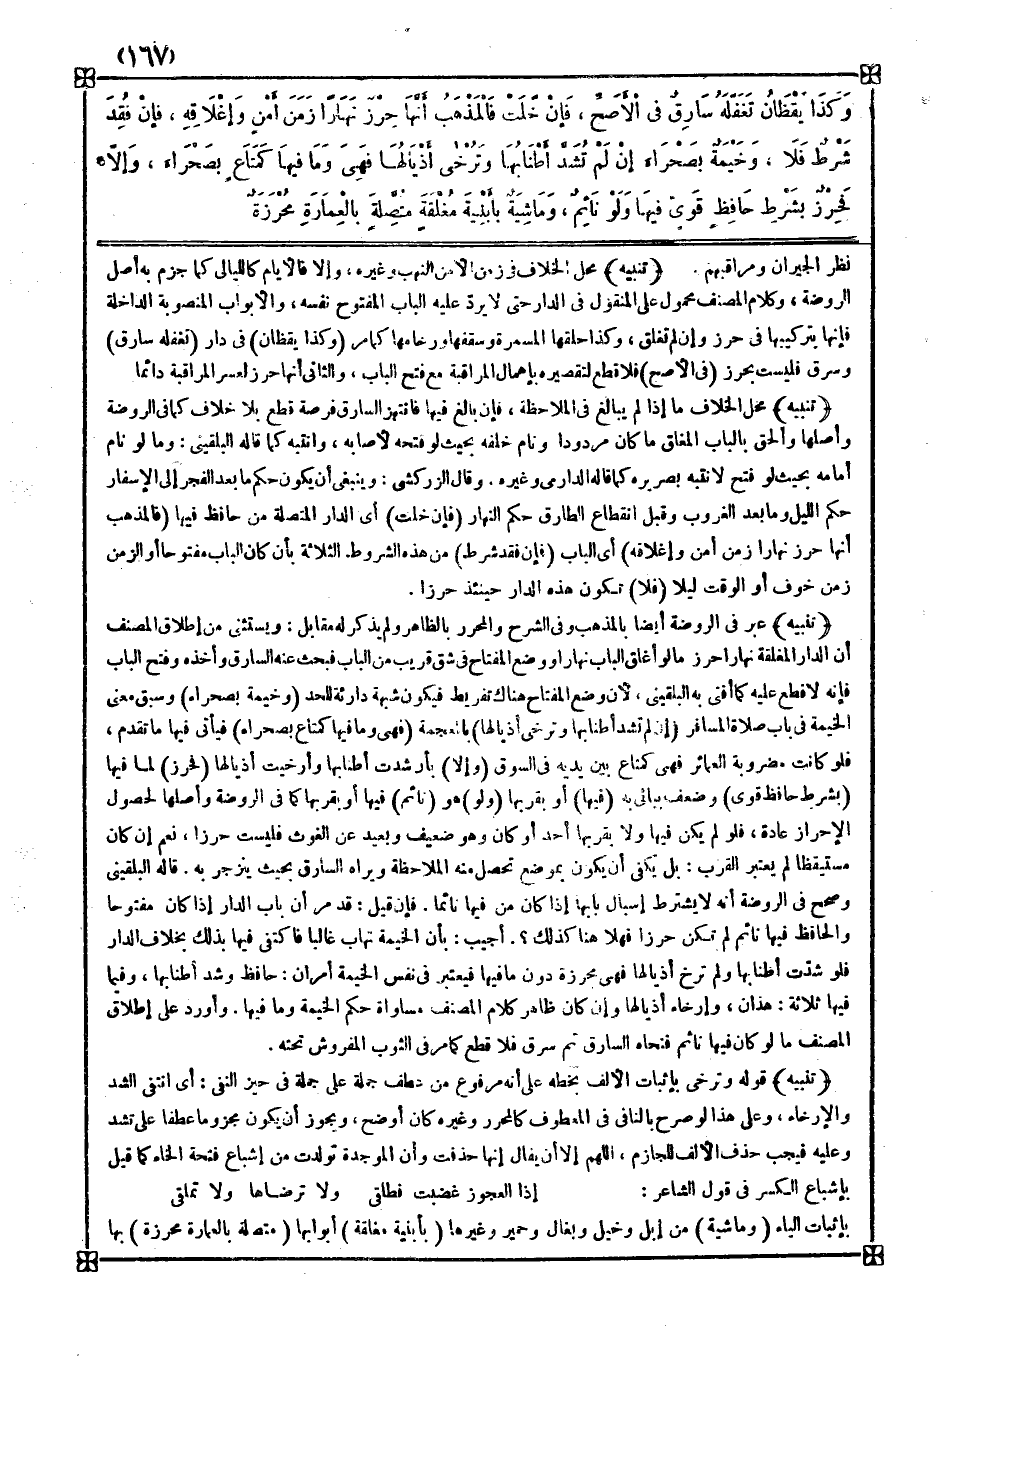 (١٦٧)
وَكَذَا يَقْظَانُ تَغَفَّلَهُ سَارِقٌ فِى الْأَصَحِّ ، فَإِنْ خَلَتْ فَالْمَذْهَبُ أَنَّهَا حِرْزٌ نَهَارًا زَمَنَ أَمْنٍ وَإِغْلَاقِهِ ، فَإِنْ فُقِدَ
شَرْطٌ فَلَا ، وَخَيْمَةٌ بِصَحْرَاءَ إِنْ لَمْ تُشَدَّ أَطْنَابُهَا وَتُرْخَى أَذْيَالُهَا فَهِىَ وَمَا فِيهَا كَمَتَاعٍ بِصَحْرَاءَ ، وَإِلَّا
فَحِرْزٌ بِشَرْطِ حَافِظٍ قَوِىٍّ فِيهَا وَلَوْ نَائِمٌ ، وَمَاشِيَةٌ بِأَبْنِيَةٍ مُغْلَقَةٍ مُتَّصِلَةٍ بِالْعِمَارَةِ مُحْرَزَةٌ
نظر الجيران ومراقبهم . (تنبيه) محل الخلاف فى زمن الأمن النهب وغيره ، وإلا فالأيام كالليالى كما جزم به أصل
الروضة ، وكلام المصنف محمول على المنقول فى الدار حتى لا يرد عليه الباب المفتوح نفسه ، والأبواب المنصوبة الداخلة
فإنها بتركيبها فى حرز وإن لم تغلق ، وكذا حلقها المسمرة وسقفها ورخامها كما مر (وكذا يقظان) فى دار (تغفله سارق)
وسرق فليست بحرز (فى الأصح) فلا قطع لتقصيره بإهمال المراقبة مع فتح الباب ، والثانى أنها حرز لعسر المراقبة دائما
(تنبيه) محل الخلاف ما إذا لم يبالغ فى الملاحظة ، فإن بالغ فيها فانتهز السارق فرصة قطع بلا خلاف كما فى الروضة
وأصلها وألحق بالباب المغلق ما كان مردودا ونام خلفه بحيث لو فتحه لأصابه ، وانتبه كما قاله البلقينى : وما لو نام
أمامه بحيث لو فتح لانتبه بصريره كما قاله الدارمى وغيره . وقال الزركشى : وينبغى أن يكون حكم ما بعد الفجر إلى الإسفار
حكم الليل وما بعد الغروب وقبل انقطاع الطارق حكم النهار (فإن خلت) أى الدار المتصلة من حافظ فيها (فالمذهب
أنها حرز نهارا زمن أمن وإغلاقه) أى الباب (فإن فقد شرط) من هذه الشروط الثلاثة بأن كان الباب مفتوحا أو الزمن
زمن خوف أو الوقت ليلا (فلا) تكون هذه الدار حينئذ حرزا .
(تنبيه) عبر فى الروضة أيضا بالمذهب وفى الشرح والمحرر بالظاهر ولم يذكر له مقابل : ويستثنى من إطلاق المصنف
أن الدار المغلقة نهارا حرز ما لو أغلق الباب نهارا ووضع المفتاح فى شق قريب من الباب فبحث عنه السارق وأخذه وفتح الباب
فإنه لا قطع عليه كما أفتى به البلقينى ، لأن وضع المفتاح هناك تفريط فيكون شبهة دارئة للحد (وخيمة بصحراء) وسبق معنى
الخيمة فى باب صلاة المسافر (إن لم تشد أطنابها وترخى أذيالها) بالمعجمة (فهى وما فيها كمتاع بصحراء) فيأتى فيها ما تقدم ،
فلو كانت مضروبة العمائر فهى كمتاع بين يديه فى السوق (وإلا) بأن شدت أطنابها وأرخيت أذيالها (فحرز) لما فيها
(بشرط حافظ قوى) وضعف يبالى به (فيها) أو بقربها (ولو) هو (نائم) فيها أو بقربها كما فى الروضة وأصلها لحصول
الإحراز عادة ، فلو لم يكن فيها ولا بقربها أحد أو كان وهو ضعيف وبعيد عن الغوث فليست حرزا ، نعم إن كان
مستيقظا لم يعتبر القرب : بل يكفى أن يكون بموضع تحصل منه الملاحظة ويراه السارق بحيث ينزجر به . قاله البلقينى
وصحح فى الروضة أنه لا يشترط إسبال بابها إذا كان من فيها نائما . فإن قيل : قد مر أن باب الدار إذا كان مفتوحا
والحافظ فيها نائم لم تكن حرزا فهلا هنا كذلك ؟ . أجيب : بأن الخيمة تهاب غالبا فاكتفى فيها بذلك بخلاف الدار
فلو شدّت أطنابها ولم ترخ أذيالها فهى محرزة دون ما فيها فيعتبر فى نفس الخيمة أمران : حافظ وشد أطنابها ، وفيما
فيها ثلاثة : هذان ، وإرخاء أذيالها وإن كان ظاهر كلام المصنف مساواة حكم الخيمة وما فيها . وأورد على إطلاق
المصنف ما لو كان فيها نائم فنحاه السارق ثم سرق فلا قطع كما مر فى الثوب المفروش تحته .
(تنبيه) قوله وترخى بإثبات الألف بخطه على أنه مرفوع من عطف جملة على جملة فى حيز النفى : أى انتفى الشد
والإرخاء ، وعلى هذا لو صرح بالنافى فى المعطوف كالمحرر وغيره كان أوضح ، ويجوز أن يكون مجزوما عطفا على تشد
وعليه فيجب حذف الألف للجازم ، اللهم إلا أن يقال إنها حذفت وأن الموجدة تولدت من إشباع فتحة الخاء كما قيل
بإشباع الكسر فى قول الشاعر : إذا العجوز غضبت فطلقى ولا ترضاها ولا تملقى
بإثبات الياء (وماشية) من إبل وخيل وبغال وحمير وغيرها (بأبنية مغلقة) أبوابها (متصلة بالعمارة محرزة) بها